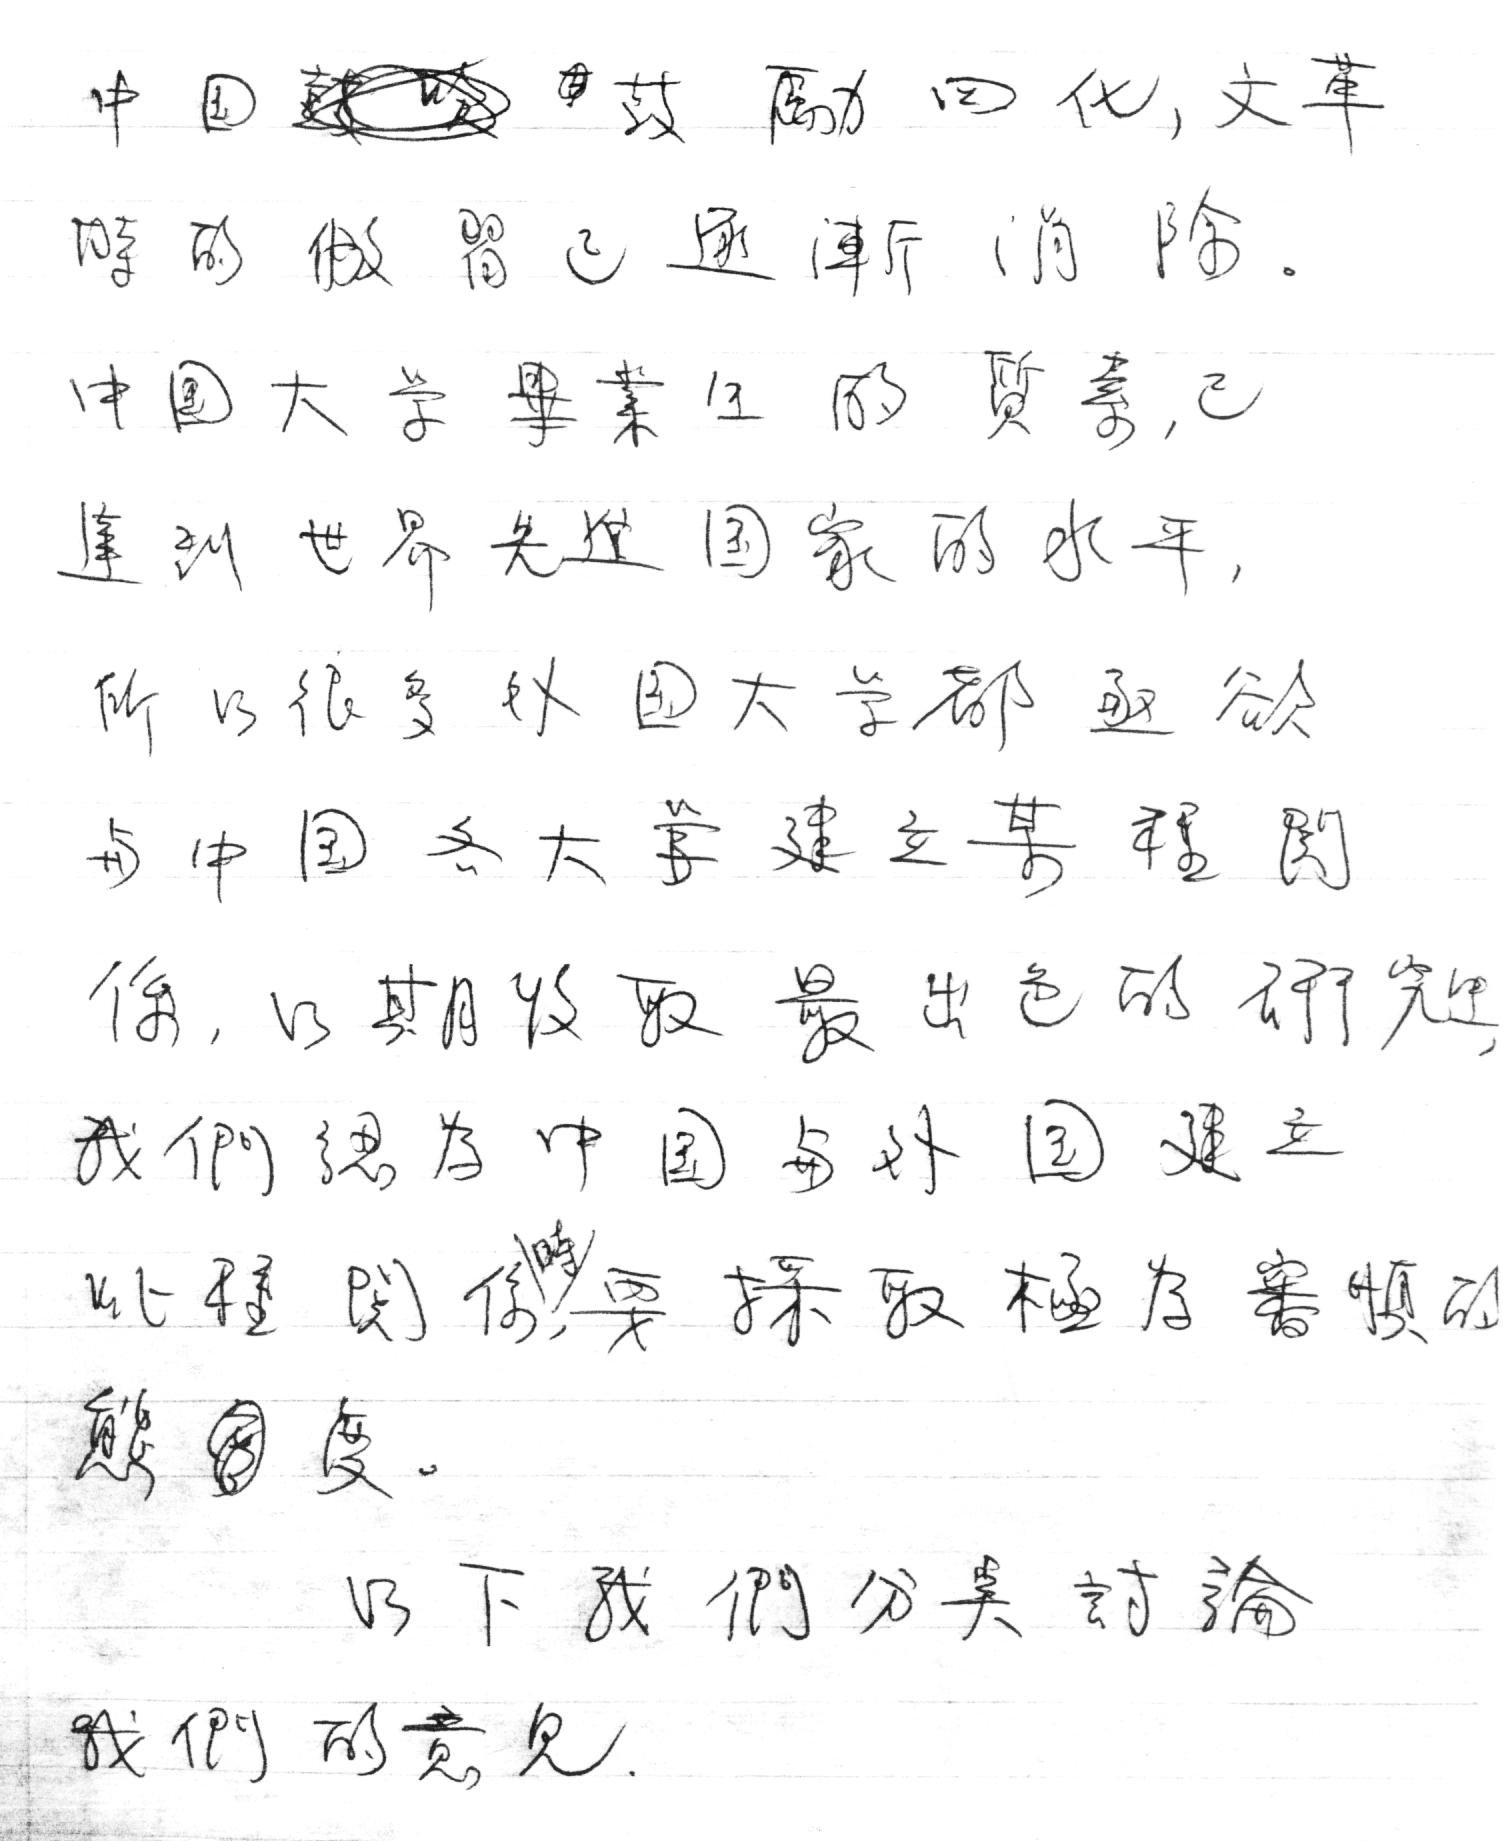 中国鼓勵四化，文革
時的習已逐漸消除。
中国大学畢業生的質素，已
達到世界先進国家的水平，
所以很多外国大学都亟欲
与中国各大学建立某種関
係，以期收取最出色的研究生，
我們認為中国与外国建立
此種関係時，要採取極為審慎的
態度。
以下我們分类討論
我們的意見.